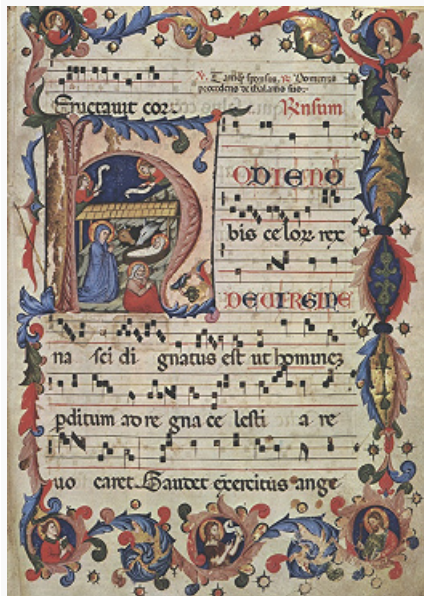 V. Tamq sponsus. R. Dominus
procedens de thalamo suo.
Eructauit cor. Rnsum
HODIE NO
bis celor rex
DE VIRGINE
na sci di gnatus est ut hominez
pditum ad re gna ce lesti a re
uo caret. Gaudet exercitus ange